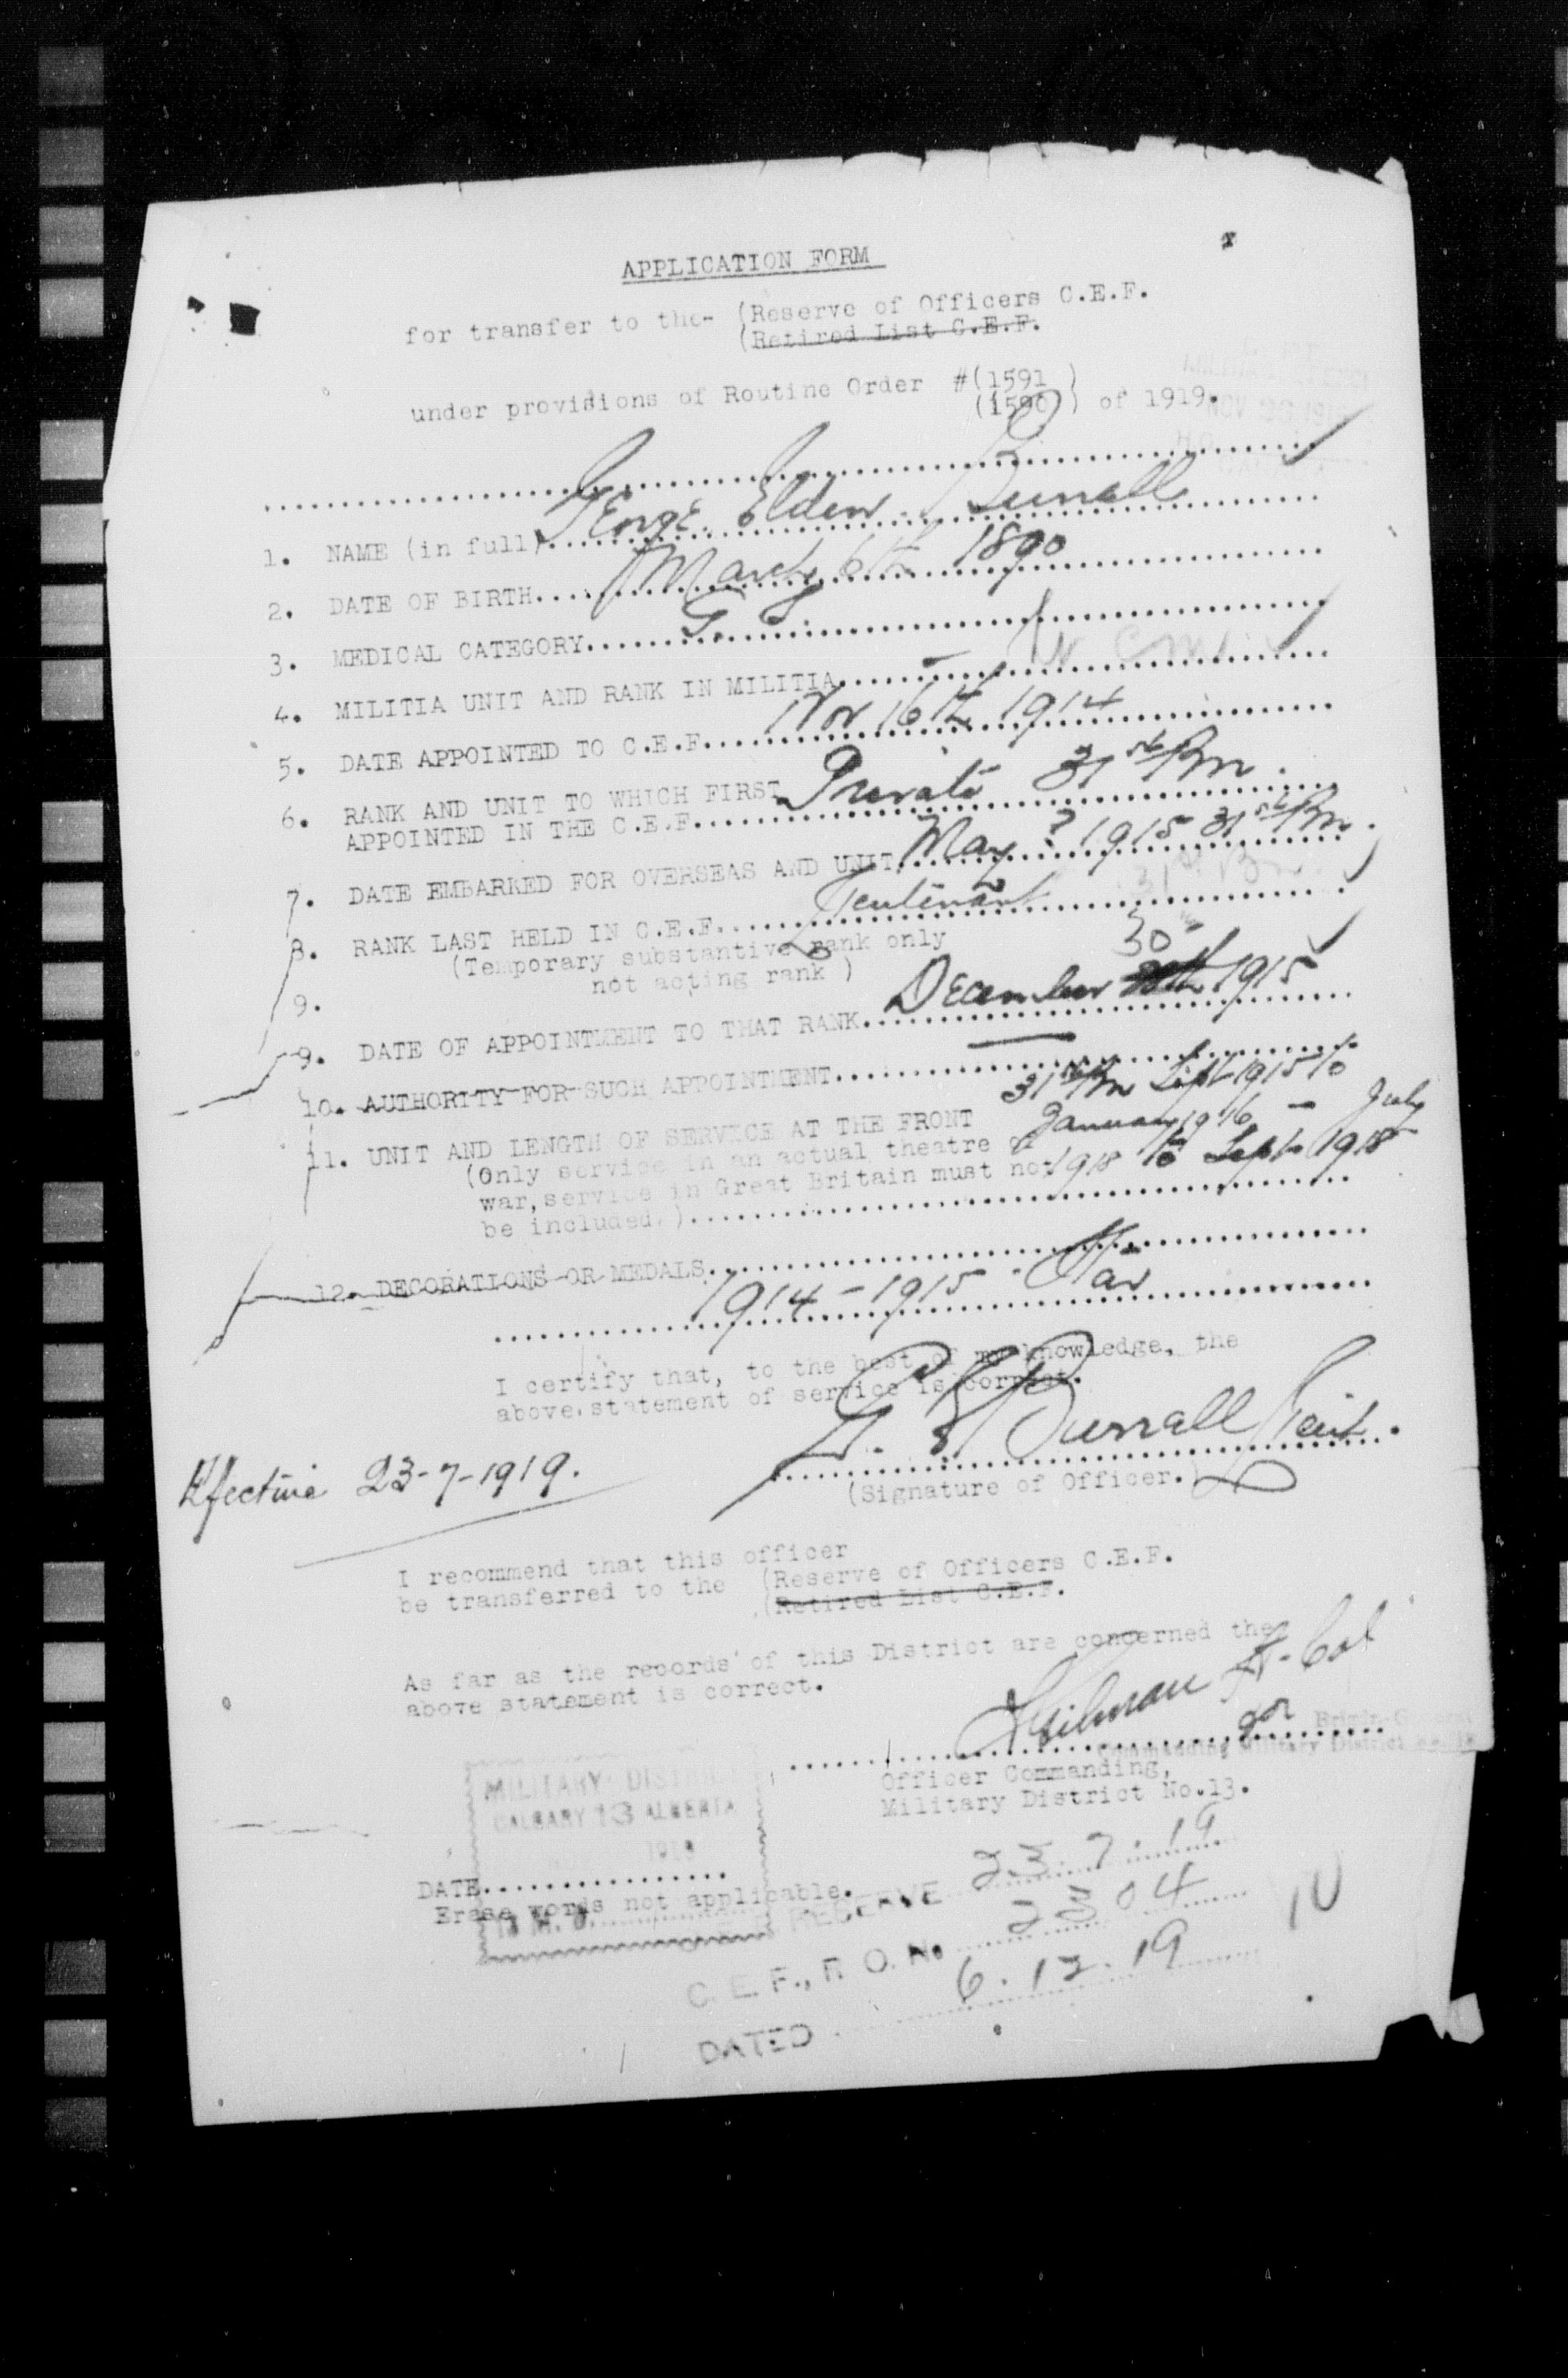 APPLICATION FORM
for transfer to the- (Reserve of Officers C.E.F.
(Retired List C.E.F.
under provisions of Routine Order #(1591 )
(1590 ) of 1919.
1. NAME (in full) George Elden Burrall
2. DATE OF BIRTH.... March 6th 1890
3. MEDICAL CATEGORY.....
4. MILITIA UNIT AND RANK IN MILITIA
5. DATE APPOINTED TO C.E.F.... Nov 16th 1914
6. RANK AND UNIT TO WHICH FIRST Private 31st Bn.
APPOINTED IN THE C.E.F.
7. DATE EMBARKED FOR OVERSEAS AND UNIT. May ? 1915 31st Bn.
31st Bn.
8. RANK LAST HELD IN C.E.F. Lieutenant
(Temporary substantive rank only
not acting rank )
9.
30th
9. DATE OF APPOINTMENT TO THAT RANK. December 1915
10. AUTHORITY FOR SUCH APPOINTMENT —
11. UNIT AND LENGTH OF SERVICE AT THE FRONT 31st Bn Sept 1915 to
(Only service in an actual theatre of January 1916 - July
war, service in Great Britain must not 1918 to Sept 1918
be included.)
12. DECORATIONS OR MEDALS
1914 - 1915 Star
I certify that, to the best of my knowledge, the
above statement of service is correct.
G. E. Burrall Lieut.
(Signature of Officer.)
Effective 23-7-1919.
I recommend that this officer
be transferred to the (Reserve of Officers C.E.F.
(Retired List C.E.F.
As far as the records of this District are concerned the
above statement is correct.
Lt-Col
for Brigdr-General
Commanding Military District No. 13
Officer Commanding,
Military District No.13.
MILITARY DISTRICT
CALGARY 13 ALBERTA
DATE................
Erase words not applicable.
RESERVE 23.7.19
C. E. F., R. O. No. 2304
DATED 6.12.19
10